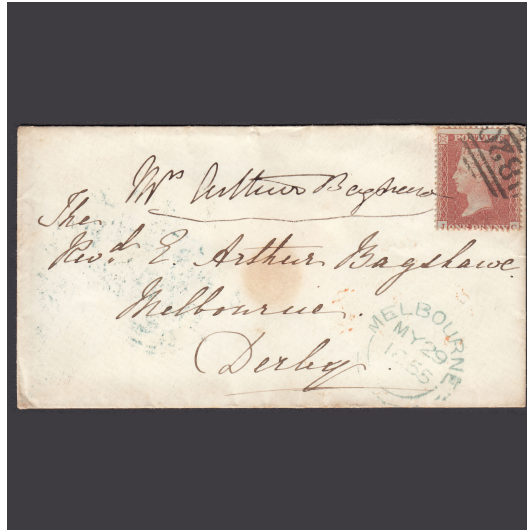 POSTAGE
Mrs Arthur Bagshawe
The
Revd. E. Arthur Bagshawe.
Melbourne.
Derby.
ONE PENNY
MELBOURNE
MY 29
1856